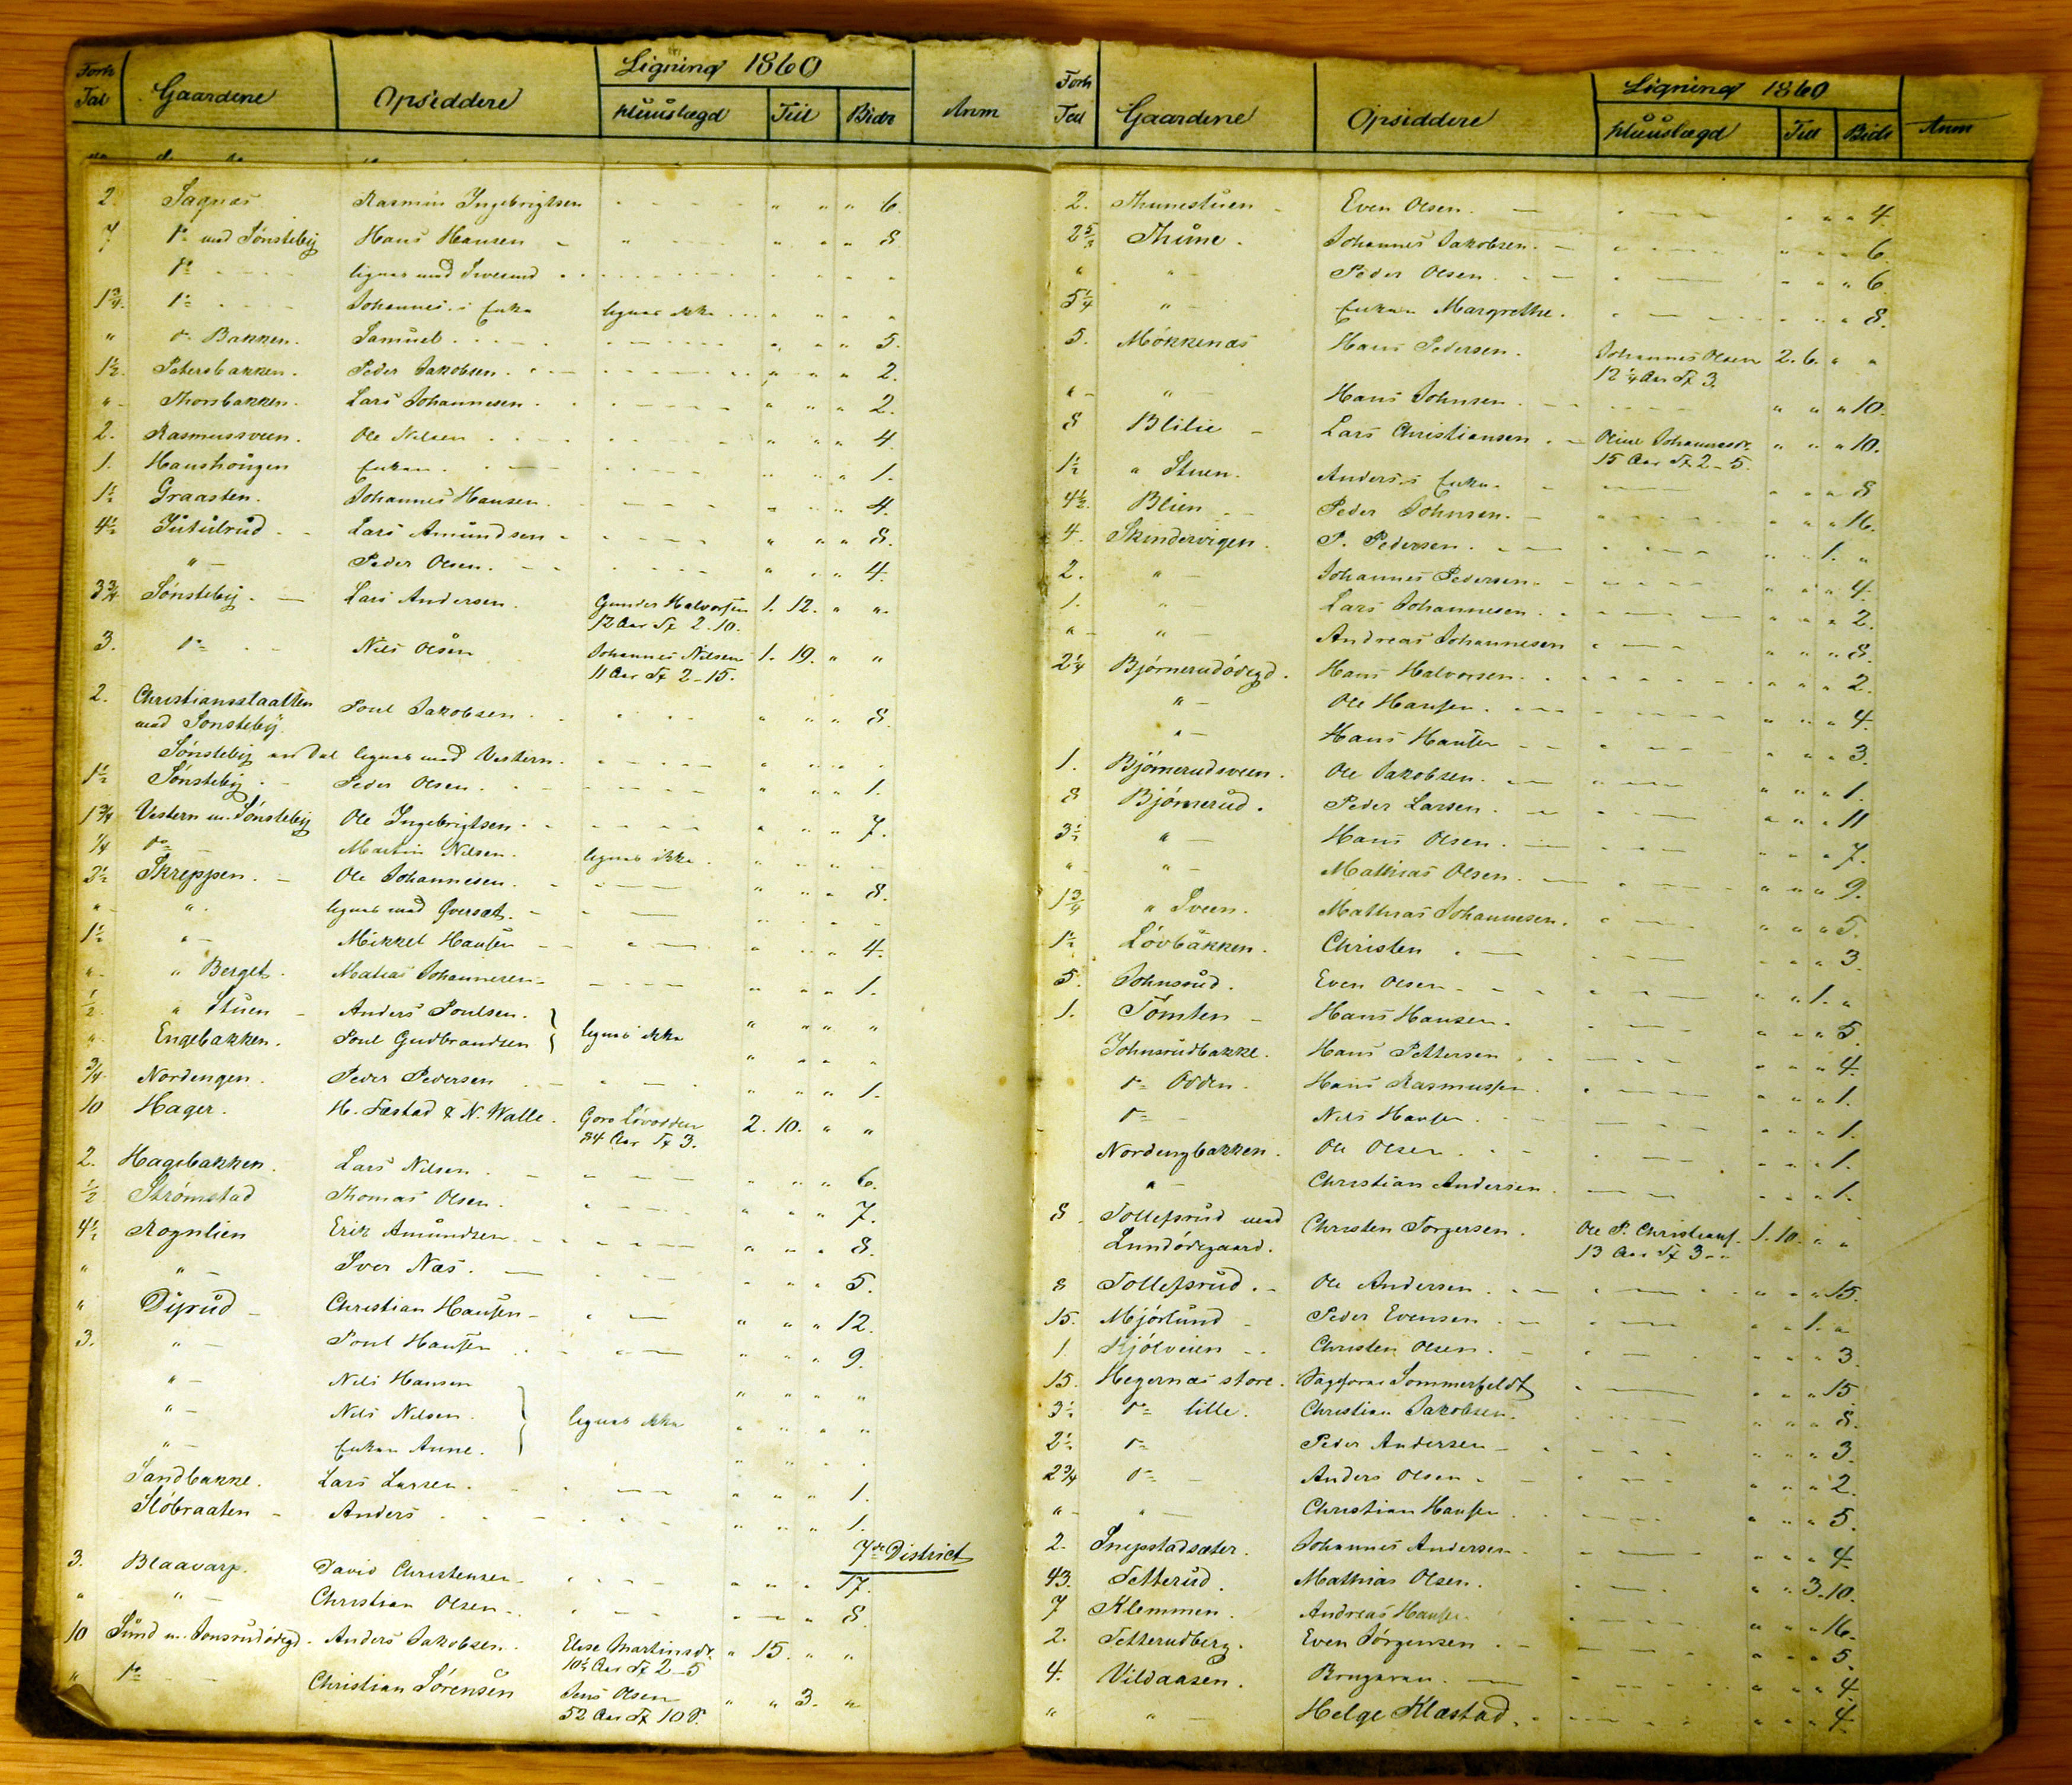 Forh Tal Gaardene Opsiddere Ligning 1860 Huuslægd Till Bidr Anm
2. Sagnæs Rasmus Ingebrigtsen " " " 6
7 Do med Sønsteby Hans Hansen " " " 8
Do lignes med " " "
1 3/4 Do Johannes's Enke lignes ikke " " " "
" Do Bakken. Samuel " " " 5.
1 1/2. Petersbakken. Peder Jakobsen. " " " 2.
" Thorsbakken. Lars Johannesen. " " " 2.
2. Rasmussveen. Ole Nilsen " " " 4
1. Haushougen Enken. " " " 1.
1 1/2 Graasten. Johannes Hansen. " " " 4.
4 1/2 Jutulrud Lars Amundsen " " " 8.
" Peder Olsen. " " " 4.
3 3/4 Sønsteby. Lars Andersen. Gunder Halvorsen 1. 12. " "
12 Aar Tx 2.10.
3. Do Nils Olsen Johannes Nilsen 1. 19. " "
11 Aar Tx 2-15.
2. Christiansslaatten Poul Jakobsen. " " " 8.
med Sønsteby.
Sønsteby en Del lignes med Vestern. " " "
1 1/2 Sønsteby. Peder Olsen. " " " 1.
1 3/4 Vestern m. Sønsteby Ole Ingebrigtsen. " " " 7.
1/4 Do Martin Nilsen. lignes ikke. " " "
3 1/2 Skreppen. Ole Johannesen. " " " 8.
" " lignes med Qversæt.
1 1/2 " Mikkel Hansen " " " 4.
" " Berget. Matias Johannesen " " " 1.
1/2 " Stuen Anders Poulsen. } lignes ikke " " " "
" Engebakken. Poul Gudbrandsen " " " "
3/4 Nordengen. Peder Pedersen " " " 1.
10 Hager. H. Fæstad & N. Walle. Goro Løvodden 2. 10. " "
84 Aar Tx 3.
2. Hagebakken. Lars Nilsen. " " " 6.
1/2 Strømstad Thomas Olsen. " " " 7.
4 1/2 Rognlien Erik Amundsen " " " 8.
" " Iver Næs. " " " 5.
" Dyrud Christian Hansen " " " 12.
3. " Poul Hansen " " " 9.
" Nils Hansen " " " "
" Nils Nilsen. } lignes ikke " " " "
" Enken Anne. " " " "
Sandbakke. Lars Larsen. " " " 1.
Slóbraaten Anders " " " 1.
7de District
3. Blaavarp. David Christensen " " " 17.
" " Christian Olsen " " " 8
10 Sund m. Jonsrudódegd. Anders Jakobsen. Elise Martinsdr. " 15. " "
10 1/2 Aar Tx 2-5
" Do Christian Sørensen Jens Olsen " " 3. "
52 Aar Tx 10 S.
Forh Tal Gaardene Opsiddere Ligning 1860 Huuslægd Till Bidr Anm
2. Thunestuen Even Olsen. " " " 4.
2 5/8 Thune. Johannes Jakobsen. " " " 6.
" " Peder Olsen. " " " 6
5 1/4 " Enken Margrethe. " " " 8.
5. Mókkenæs Hans Pedersen. Johannes Olsen 2. 6. " "
12 1/4 Aar Tx 3.
" " Hans Johnsen. " " " 10.
8 Blilie Lars Christiansen. Oline Johannesdr. " " " 10.
15 Aar Tx 2-5.
1 1/2 " Stuen. Anders's Enke. " " " 8
4 1/2. Blien Peder Johnsen. " " " 16.
4. Skindervigen. P. Pedersen. " " 1. "
2. " Johannes Pedersen. " " " 4.
1. " Lars Johannesen. " " " 2.
" " Andreas Johannesen " " " 8.
2 1/4 Bjórnerudódegd. Hans Halvorsen. " " " 2.
" Ole Hansen. " " " 4.
" Hans Hansen " " " 3.
1. Bjórnerudsveen. Ole Jakobsen. " " " 1.
8 Bjórnerud. Peder Larsen. " " " 11
3 1/2 " Hans Olsen. " " " 7.
" " Mathias Olsen. " " " 9.
1 3/4 " Sveen. Mathias Johannesen. " " " 5.
1 1/2 Lóvbakken. Christen " " " 3.
5. Johnsrud. Even Olsen " " 1. "
1. Tomten Hans Hansen. " " " 5.
Johnsrudbakke. Hans Pettersen " " " 4.
Do Odden. Hans Rasmussen. " " " 1.
Do Nils Hansen. " " " 1.
Nordengbakken. Ole Olsen " " " 1.
" Christian Andersen. " " " 1.
8. Tollefsrud med Christen Torgersen. Ole P. Christians. 1. 10. " "
Lundódegaard. 13 Aar Tx 3 - "
8 Tollefsrud. Ole Andersen " " " 15.
15. Mjórlund Peder Evensen " " 1. "
1. Kjólveien Christen Olsen. " " " 3.
15. Hegernæs store. Sommerfeldt " " " 15
3 1/2 Do lille. Christian Jakobsen. " " " 8.
2 1/2 Do Peder Andersen " " " 3.
2 3/4 Do Anders Olsen " " " 2.
" " Christian Hansen " " " 5.
2. Snepstadsæter. Johannes Andersen " " " 4.
43. Tetterud. Mathias Olsen. " " 3. 10.
7 Klemmen. Andreas Hansen. " " " 16.
2. Tetterudberg. Even Jórgensen " " " 5.
4. Vildaasen. " " " 4
" " Helge Klæstad. " " " 4.